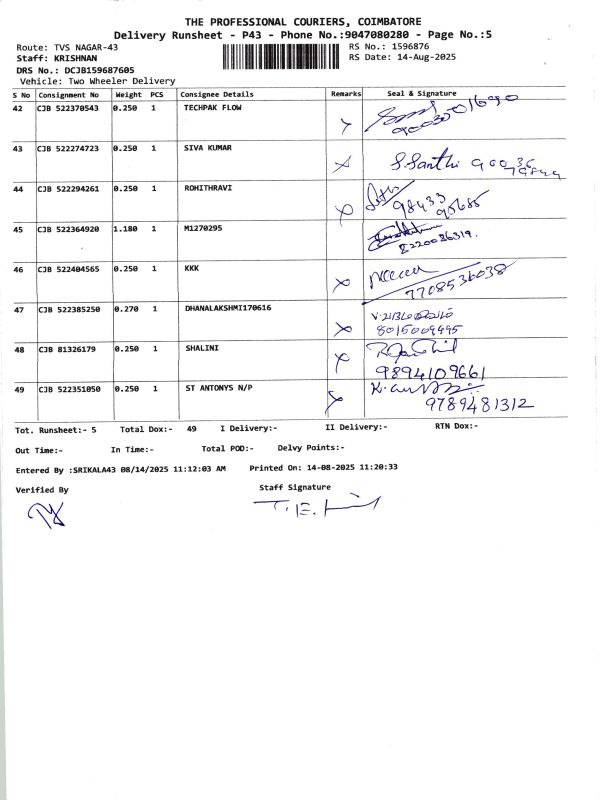 THE PROFESSIONAL COURIERS, COIMBATORE
Delivery Runsheet - P43 - Phone No.:9047080280 - Page No.:5
Route: TVS NAGAR-43
RS No.: 1596876
Staff: KRISHNAN
RS Date: 14-Aug-2025
DRS No.: DCJB159687605
Vehicle: Two Wheeler Delivery
S No Consignment No Weight PCS Consignee Details Remarks Seal & Signature
42 CJB 522370543 0.250 1 TECHPAK FLOW
43 CJB 522274723 0.250 1 SIVA KUMAR S.Santhi
44 CJB 522294261 0.250 1 ROHITHRAVI
98433
45 CJB 522364920 1.180 1 M1270295
8220086319.
46 CJB 522404565 0.250 1 KKK
7708536038
47 CJB 522385250 0.270 1 DHANALAKSHMI170616
8015009495
48 CJB 81326179 0.250 1 SHALINI
9894109661
49 CJB 522351050 0.250 1 ST ANTONYS N/P
9789481312
Tot. Runsheet:- 5 Total Dox:- 49 I Delivery:- II Delivery:- RTN Dox:-
Out Time:- In Time:- Total POD:- Delvy Points:-
Entered By :SRIKALA43 08/14/2025 11:12:03 AM Printed On: 14-08-2025 11:20:33
Verified By Staff Signature